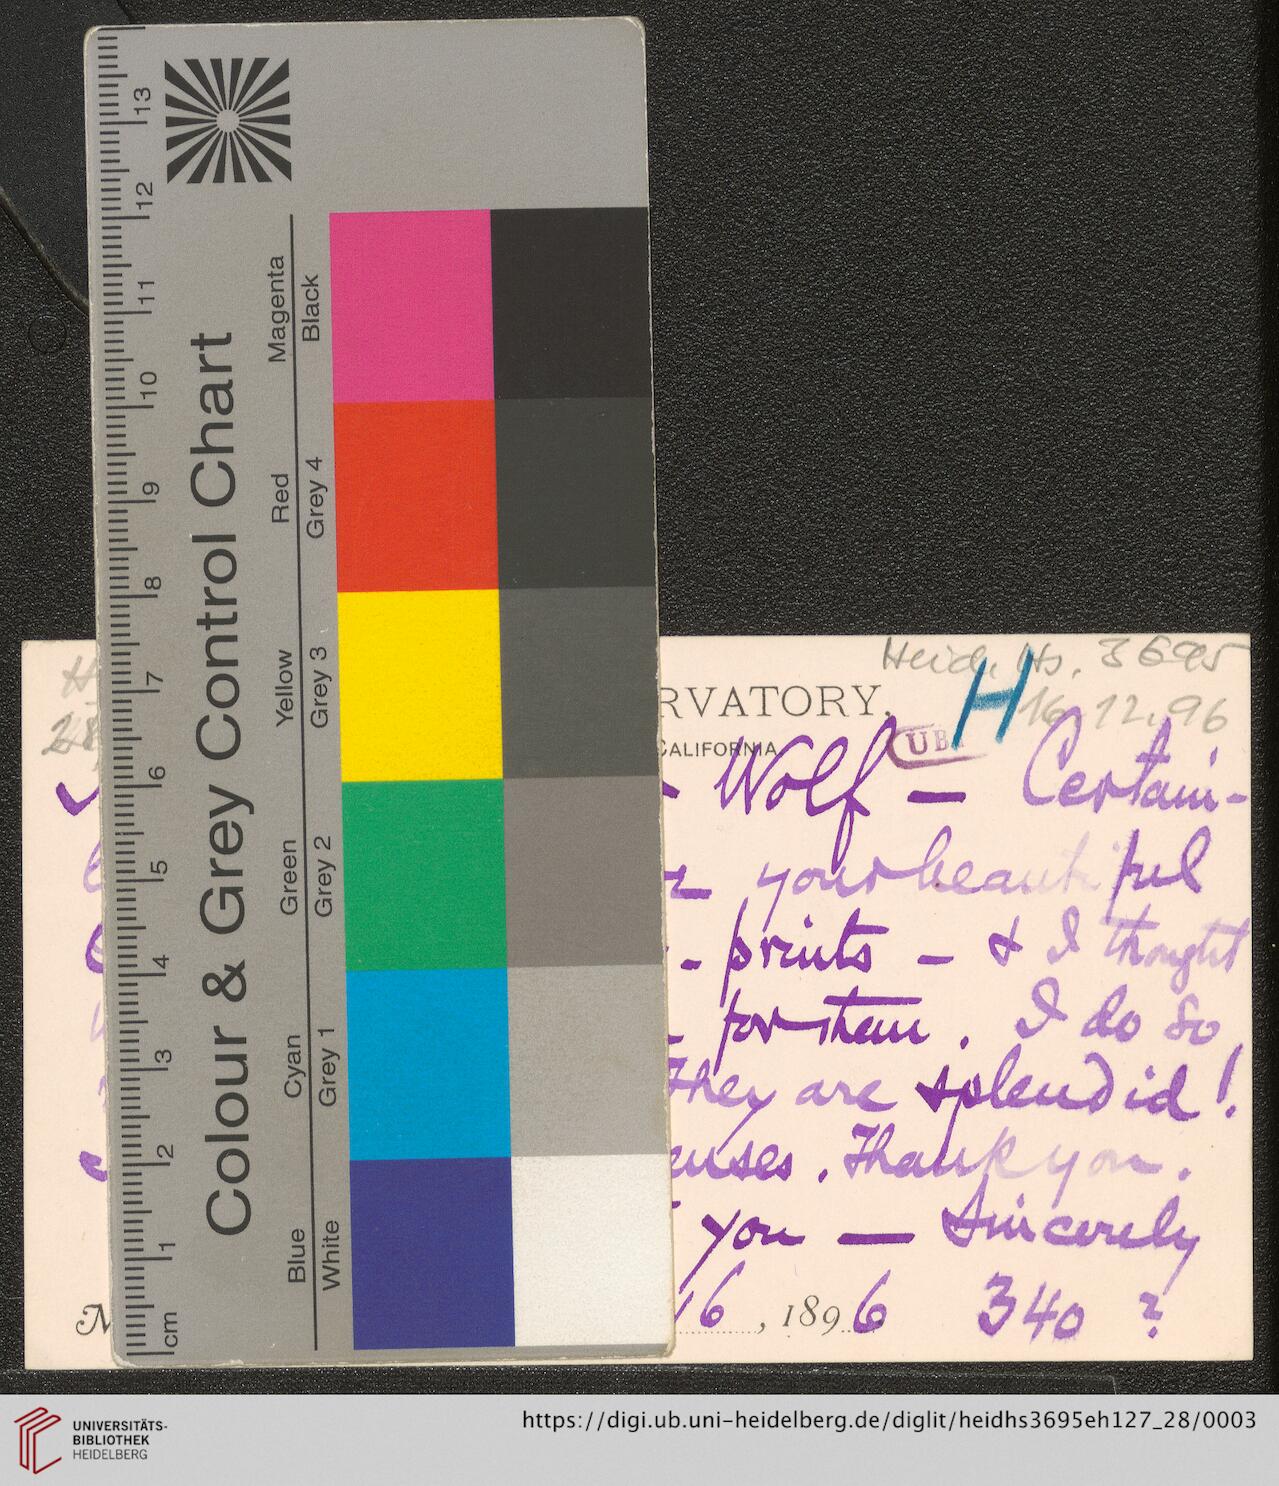 Heid. Hs. 3695
H
16.12.96
RVATORY.
CALIFORNIA
UB
Wolf — Certain-
your beautiful
- prints — & I thought
for them. I do so
They are splendid!
enses. Thank you.
you — Sincerely
16, 1896 340 ?
Colour & Grey Control Chart
Magenta
Black
Red
Grey 4
Yellow
Grey 3
Green
Grey 2
Cyan
Grey 1
Blue
White
13
12
11
10
9
8
7
6
5
4
3
2
1
cm
UNIVERSITÄTS-
BIBLIOTHEK
HEIDELBERG
https://digi.ub.uni-heidelberg.de/diglit/heidhs3695eh127_28/0003